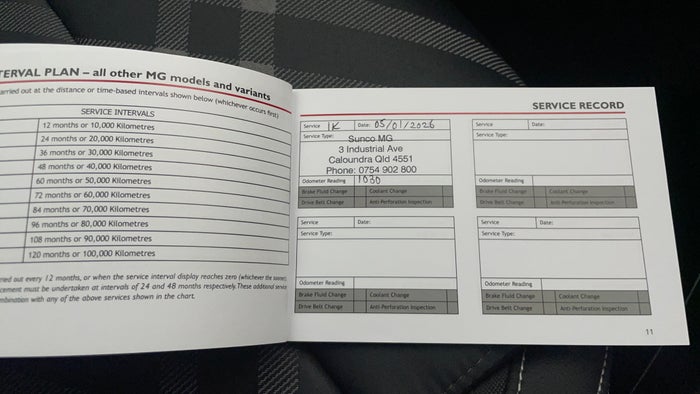 TERVAL PLAN – all other MG models and variants
arried out at the distance or time-based intervals shown below (whichever occurs first)
SERVICE INTERVALS
12 months or 10,000 Kilometres
24 months or 20,000 Kilometres
36 months or 30,000 Kilometres
48 months or 40,000 Kilometres
60 months or 50,000 Kilometres
72 months or 60,000 Kilometres
84 months or 70,000 Kilometres
96 months or 80,000 Kilometres
108 months or 90,000 Kilometres
120 months or 100,000 Kilometres
ried out every 12 months, or when the service interval display reaches zero (whichever the sooner)
cement must be undertaken at intervals of 24 and 48 months respectively. These additional service
mbination with any of the above services shown in the chart.
SERVICE RECORD
Service 1K Date: 05/01/2026
Service Type:
Sunco MG
3 Industrial Ave
Caloundra Qld 4551
Phone: 0754 902 800
Odometer Reading 1030
Brake Fluid Change Coolant Change
Drive Belt Change Anti-Perforation Inspection
Service Date:
Service Type:
Odometer Reading
Brake Fluid Change Coolant Change
Drive Belt Change Anti-Perforation Inspection
Service Date:
Service Type:
Odometer Reading
Brake Fluid Change Coolant Change
Drive Belt Change Anti-Perforation Inspection
Service Date:
Service Type:
Odometer Reading
Brake Fluid Change Coolant Change
Drive Belt Change Anti-Perforation Inspection
11